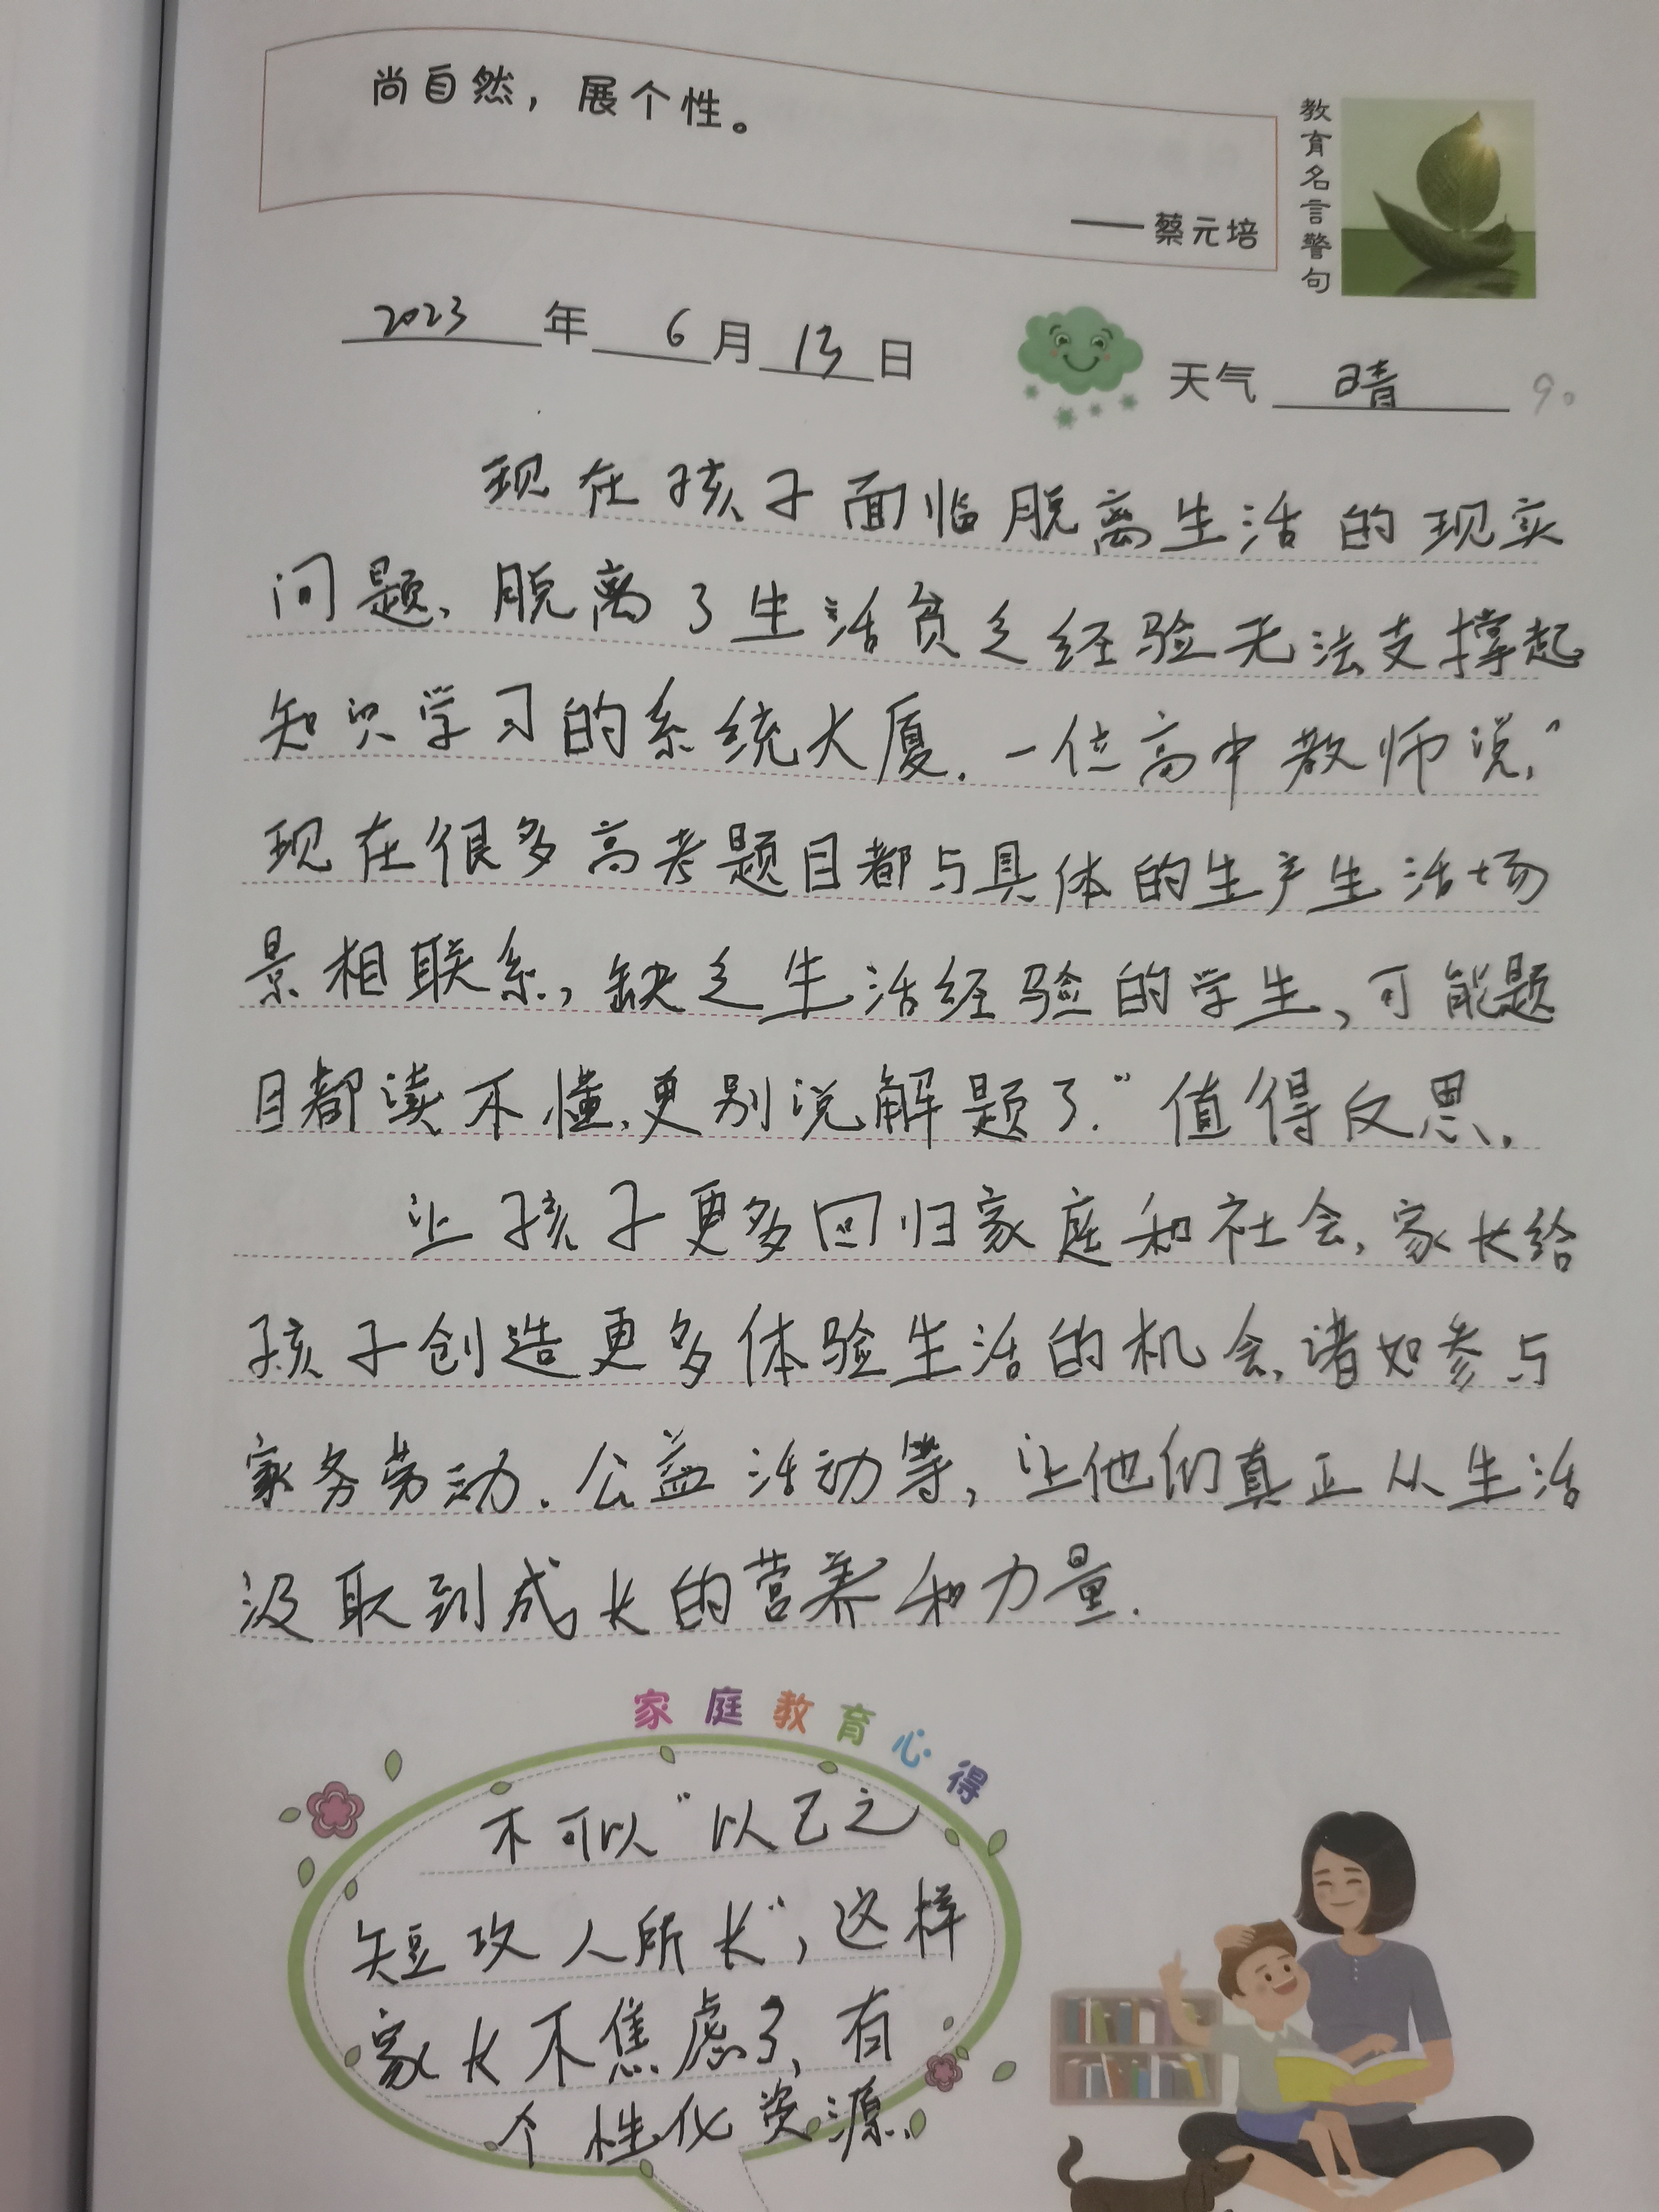 尚自然，展个性。
——蔡元培
教育名言警句
2023年6月13日
天气 晴 90
现在孩子面临脱离生活的现实
问题、脱离了生活贫乏经验无法支撑起
知识学习的系统大厦．一位高中教师说，“
现在很多高考题目都与具体的生产生活场
景相联系，缺乏生活经验的学生，可能题
目都读不懂，更别说解题了．”值得反思．
让孩子更多回归家庭和社会，家长给
孩子创造更多体验生活的机会，诸如参与
家务劳动．公益活动等，让他们真正从生活
汲取到成长的营养和力量．
家庭教育心得
不可以“以己之
短攻人所长”，这样
家长不焦虑了，有
个性化资源．